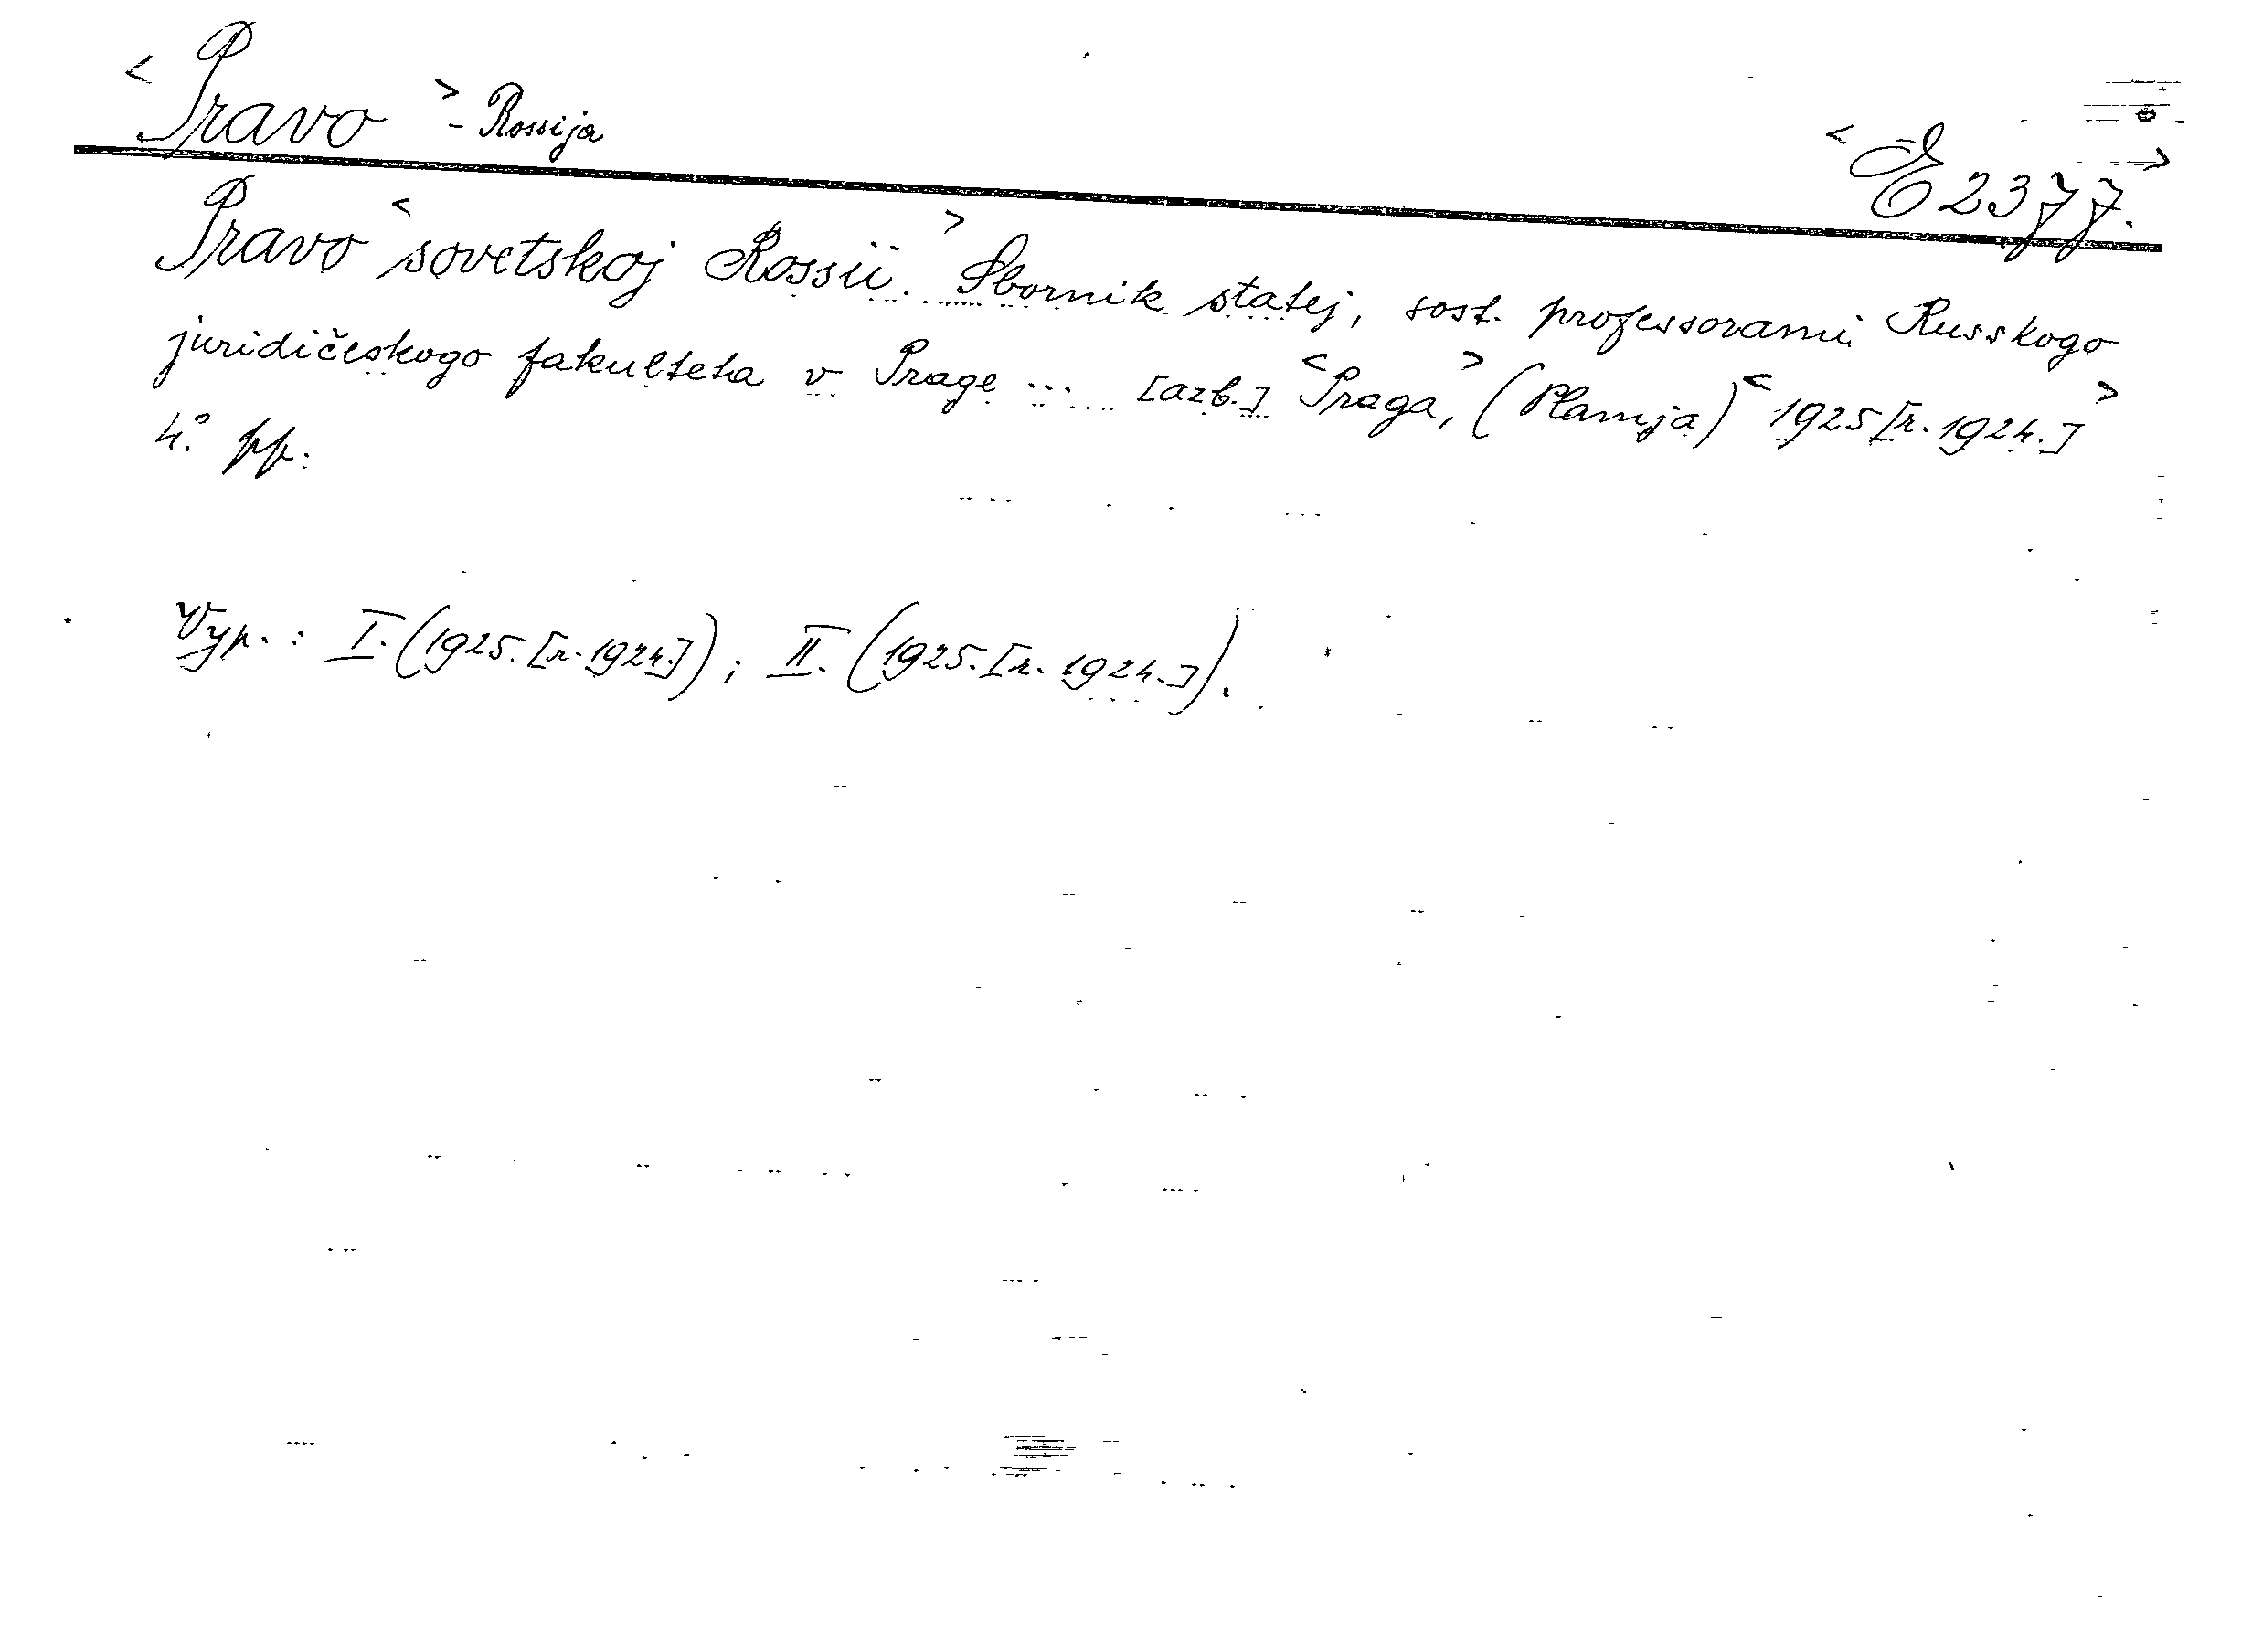 < Pravo > - Rossija
< E 2377. >
Pravo < sovetskoj Rossii. > Sbornik statej, sost. professorami Russkogo
juridičeskogo fakulteta v Prage ... [azb.] < Praga, > (Plamja) < 1925 [r. 1924.] >
4.° pp.
Vyp. : I. (1925. [r. 1924.]) ; II. (1925. [r. 1924.]).